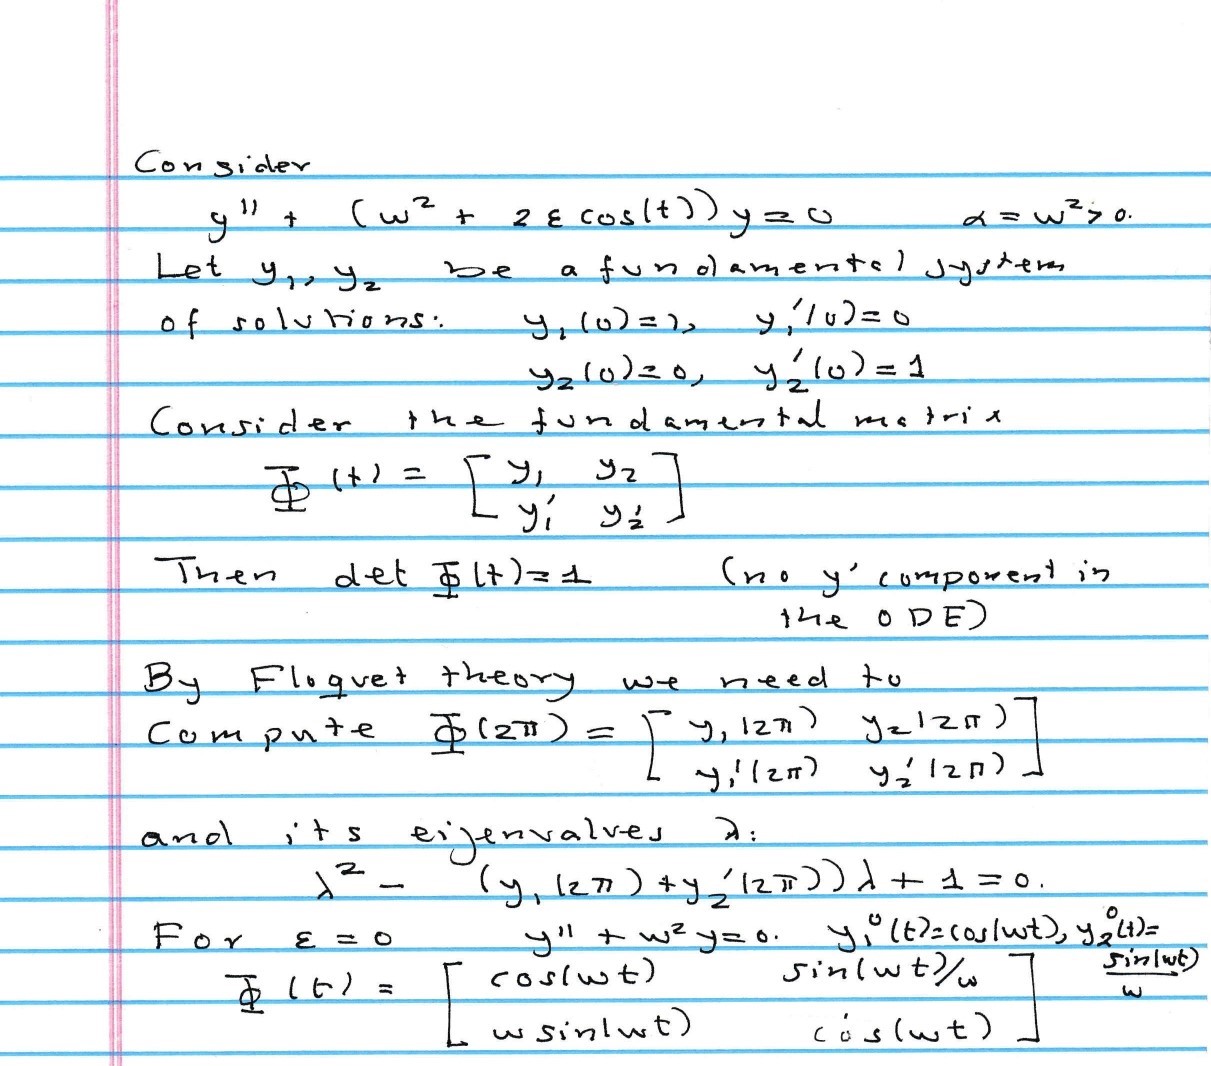 Consider
y'' + (w² + 2 ε cos(t)) y = 0    α = w² > 0.
Let y₁, y₂ be a fundamental system
of solutions: y₁(0) = 1, y₁'(0) = 0
y₂(0) = 0, y₂'(0) = 1
Consider the fundamental matrix
Φ(t) = [ y₁  y₂
y₁'  y₂' ]
Then det Φ(t) = 1    (no y' component in
the ODE)
By Floquet theory we need to
Compute Φ(2π) = [ y₁(2π)  y₂(2π)
y₁'(2π)  y₂'(2π) ]
and its eigenvalues λ:
λ² - (y₁(2π) + y₂'(2π)) λ + 1 = 0.
For ε = 0    y'' + w² y = 0.  y₁⁰(t) = cos(wt), y₂⁰(t) = sin(wt)/w
Φ(t) = [ cos(wt)  sin(wt)/w
w sin(wt)  cos(wt) ]